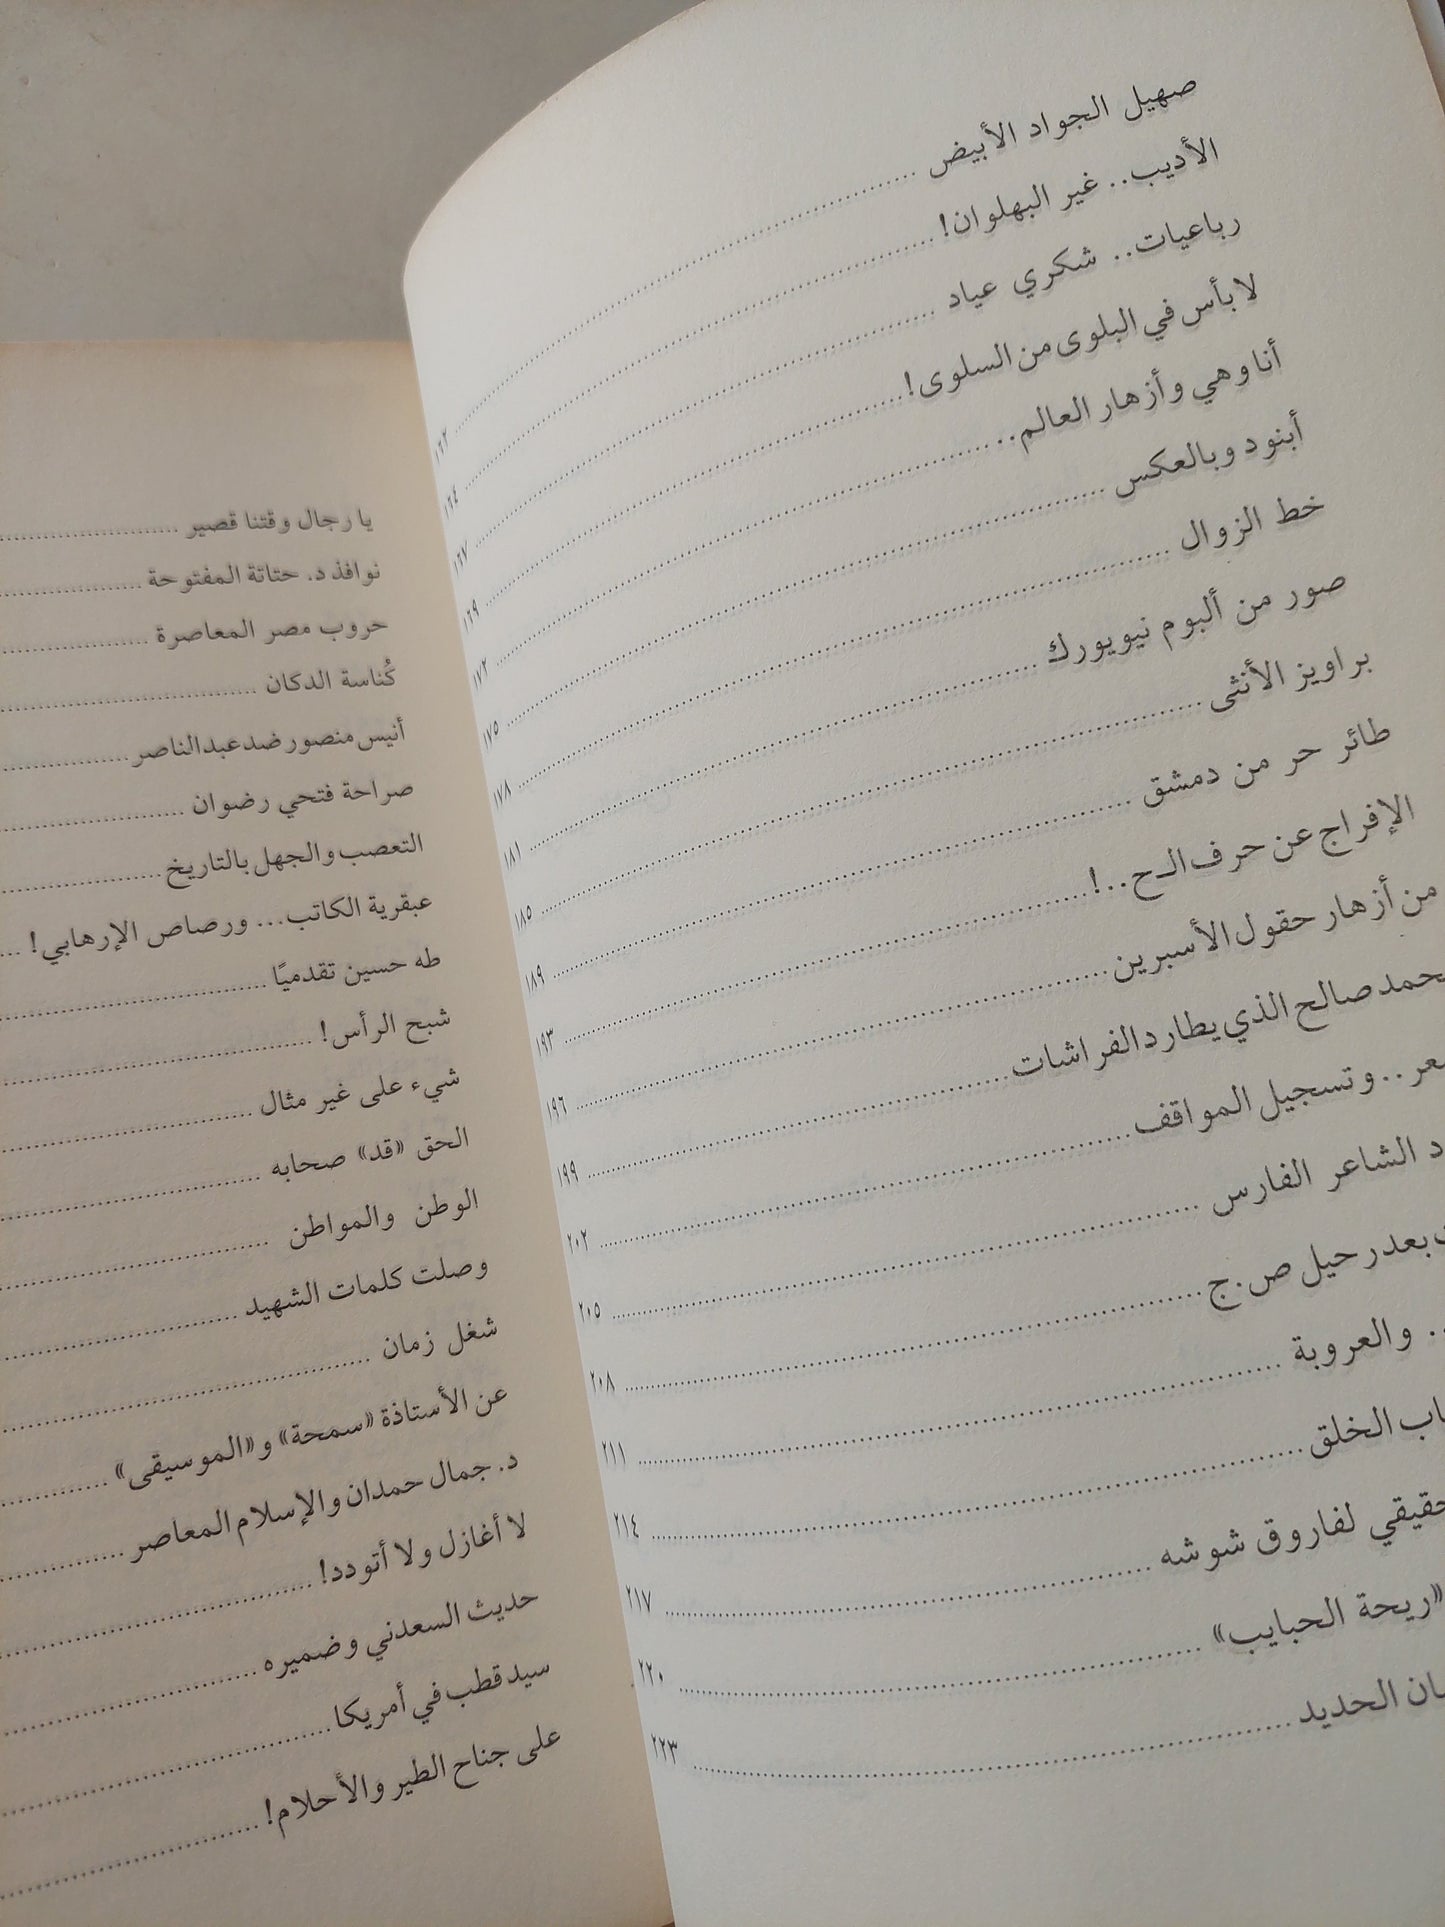 صهيل الجواد الأبيض ........ ١٦٢
الأديب.. غير البهلوان! ........ ١٦٤
رباعيات.. شكري عياد ........ ١٦٧
لا بأس في البلوى من السلوى! ........ ١٦٩
أنا وهي وأزهار العالم.. ........ ١٧٢
أبنود وبالعكس ........ ١٧٥
خط الزوال ........ ١٧٨
صور من ألبوم نيويورك ........ ١٨١
براويز الأنثى ........ ١٨٥
طائر حر من دمشق ........ ١٨٩
الإفراج عن حرف الـ ح..! ........ ١٩٣
من أزهار حقول الأسبرين ........ ١٩٦
محمد صالح الذي يطارد الفراشات ........ ١٩٩
.. وتسجيل المواقف ........ ٢٠٢
الشاعر الفارس ........ ٢٠٥
بعد رحيل ص.ج ........ ٢٠٨
.. والعروبة ........ ٢١١
الخلق ........ ٢١٤
لفاروق شوشه ........ ٢١٧
«ريحة الحبايب» ........ ٢٢٠
الحديد ........ ٢٢٣
يا رجال وقتنا قصير ........
نوافذ د. حتاتة المفتوحة ........
حروب مصر المعاصرة ........
كُناسة الدكان ........
أنيس منصور ضد عبد الناصر ........
صراحة فتحي رضوان ........
التعصب والجهل بالتاريخ ........
عبقرية الكاتب... ورصاص الإرهابي! ...
طه حسين تقدميًا ........
شبح الرأس! ........
شيء على غير مثال ........
الحق «قد» صحابه ........
الوطن والمواطن ........
وصلت كلمات الشهيد ........
شغل زمان ........
عن الأستاذة «سمحة» و«الموسيقى» ........
د. جمال حمدان والإسلام المعاصر ........
لا أغازل ولا أتودد! ........
حديث السعدني وضميره ........
سيد قطب في أمريكا ........
على جناح الطير والأحلام! ........